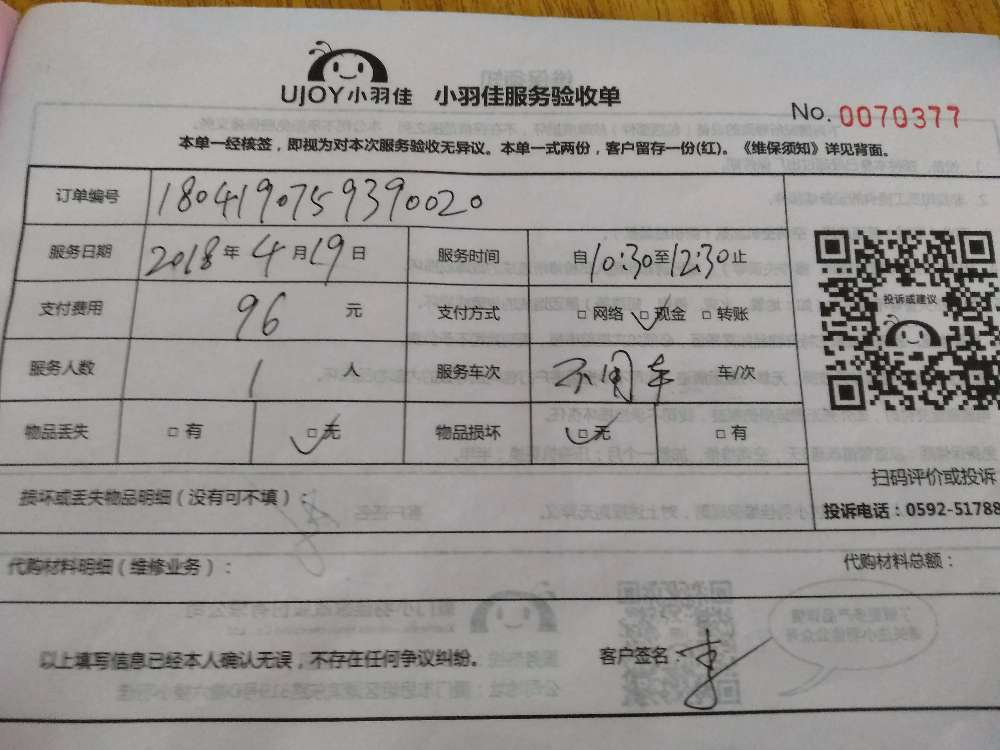 UJOY小羽佳 小羽佳服务验收单
No. 0070377
本单一经核签，即视为对本次服务验收无异议。本单一式两份，客户留存一份(红)。《维保须知》详见背面。
订单编号 1804190759390020
服务日期 2018年4月19日 服务时间 自10:30至12:30止
支付费用 96 元 支付方式 □网络 □现金 □转账
投诉或建议
服务人数 1 人 服务车次 不用车 车/次
物品丢失 □有 □无 物品损坏 □无 □有
扫码评价或投诉
损坏或丢失物品明细（没有可不填）：
投诉电话：0592-51788
代购材料明细（维修业务）： 代购材料总额：
以上填写信息已经本人确认无误，不存在任何争议纠纷。 客户签名：